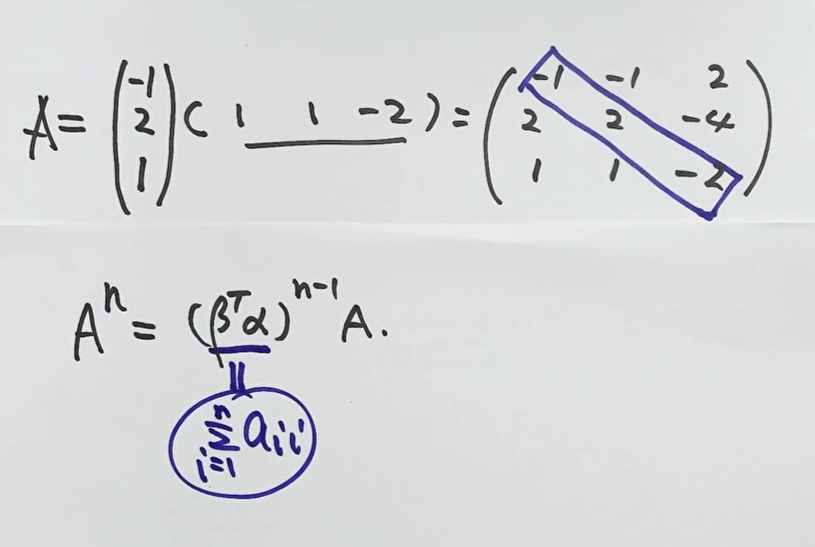 A = (-1 2 1) ( 1 1 -2 ) = (-1 -1 2
2 2 -4
1 1 -2)
Aⁿ = (βᵀα)ⁿ⁻¹ A.
||
∑ᵢ₌₁ⁿ aᵢᵢ